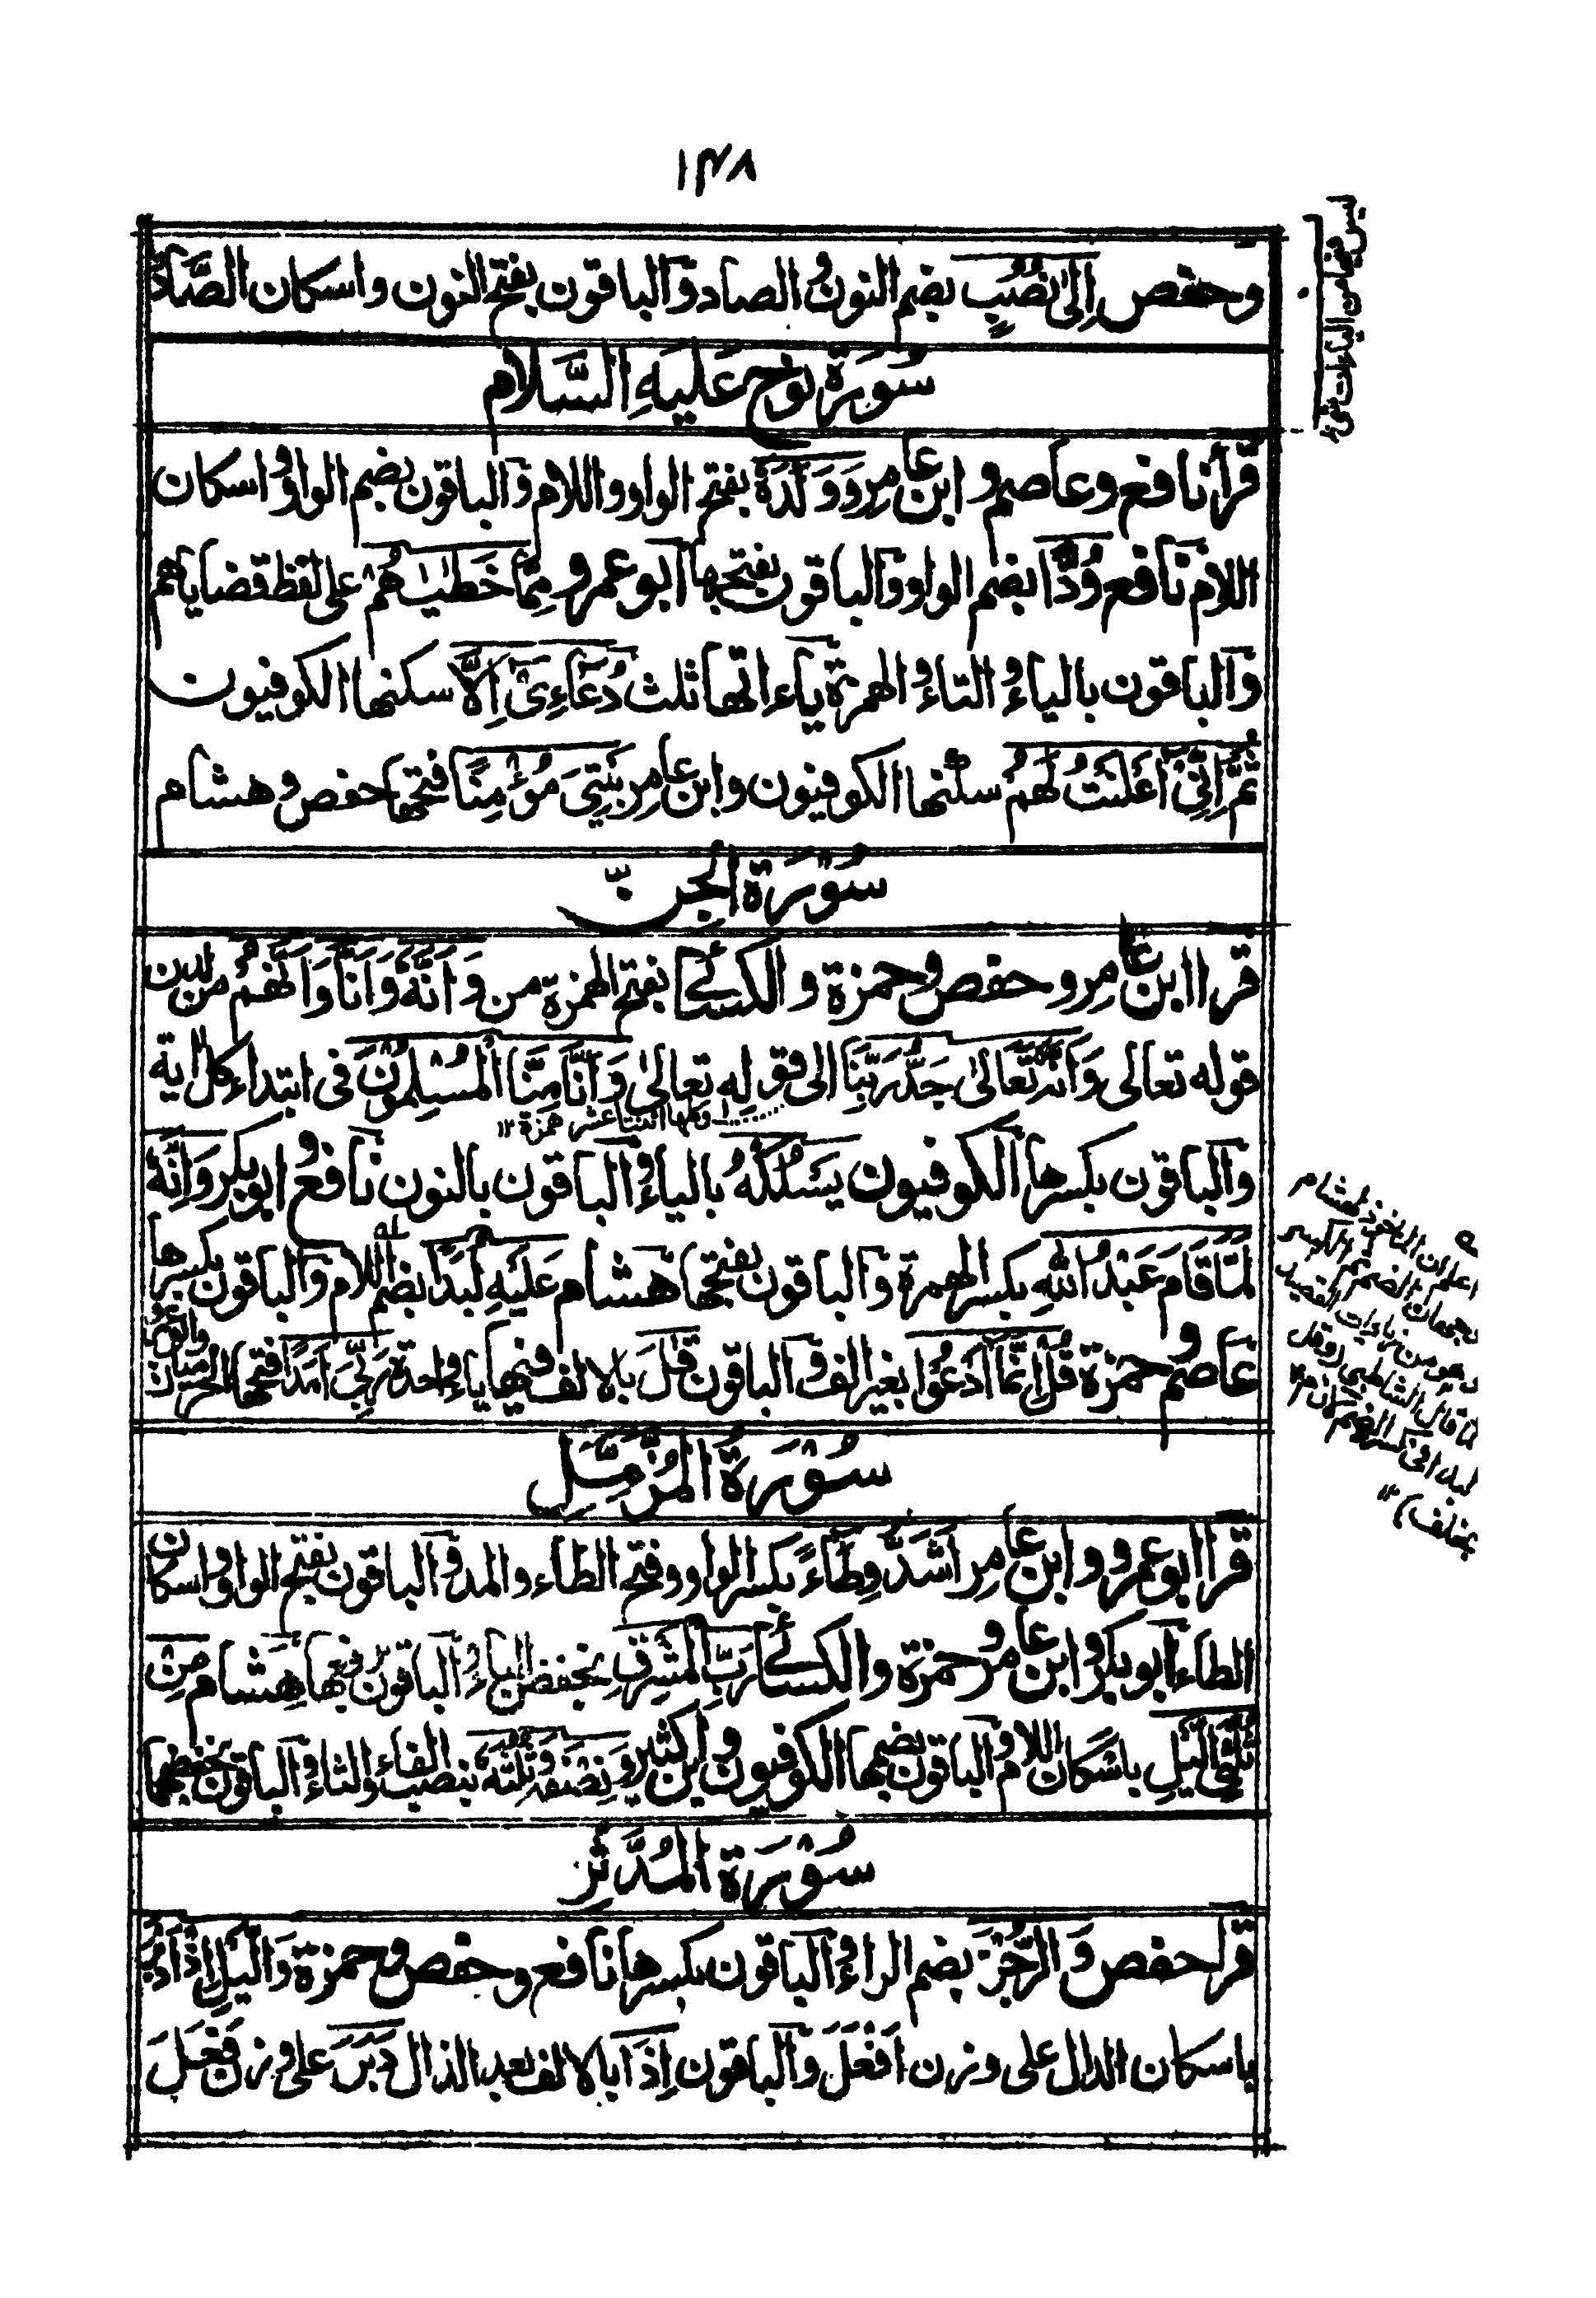 ١٣٨
وحفص إِلىٰ نُصُبٍ بضم النون و الصاد و الباقون بفتح النون و اسكان الصَّاد
ليس فيها من الياءات شئ
سُوْرَة نوح عَلَيهِ السَّلام
قرأ نافع و عاصم و ابن عامِر وَ وَلَدُهٗ بفتح الواو و اللام و الباقون بضم الواو و اسكان
اللام نافع وُدًّا بضم الواو و الباقون بفتحها ابو عمرو مِمَّا خَطٰيٰهُمْ على لفظ قضاياهم
و الباقون بالياء و التاء و الهمزة ياءاتها ثلث دُعَاءِىْ اِلَّا سكنها الكوفيون
ثُمَّ اِنِّىْ اَعْلَنْتُ لَهُمْ سكنها الكوفيون و ابن عامِر بَيْتِىَ مُؤْمِنًا فتحها حفص و هشام
سُوْرَة الجِنّ
قرا ابن عامِر و حفص و حمزة و الكسائے بفتح الهمزة من وَ اَنَّهٗ وَ اَنَّا وَ اَنَّهُمْ من لدن
قوله تعالى وَ اَنَّهٗ تَعَالىٰ جَدُّ رَبِّنَا الى قوله تعالىٰ وَ اَنَّا مِنَّا الْمُسْلِمُوْنَ فى ابتداء كل اية
وكلها اثنتا عشر همزة ١٢
و الباقون بكسرها الكوفيون يَسْلُكْهُ بالياء و الباقون بالنون نافع و ابو بكر وَ اِنَّهٗ
لَمَّا قَامَ عَبْدُ اللّٰهِ بكسر الهمزة و الباقون بفتحها هشام عَلَيْهِ لُبَدًا بضم اللام و الباقون بكسرها
عاصم و حمزة قُلْ اِنَّمَا اَدْعُوْا بغير الف و الباقون قٰلَ بالالف فيها ياء واحدة رَبِّىَ اَمَدًا فتحها الحرميان و ابو عمرو
سُوْرَةُ المُزَّمِّلِ
قرا ابو عمرو و ابن عامِر اَشَدُّ وِطَاءً بكسر الواو و فتح الطاء و المد و الباقون بفتح الواو و اسكان
الطاء ابو بكر و ابن عامر و حمزة و الكسائے رَبِّ الْمَشْرِقِ بخفض الباء و الباقون برفعها هشام مِنْ
ثُلْثَىِ الَّيْلِ باسكان اللام و الباقون بضمها الكوفيون و ابن كثير وَ نِصْفَهٗ وَ ثُلُثَهٗ بنصب الفاء و الثاء و الباقون بخفضهما
سُوْرَة المُدَّثِّر
قرا حفص وَ الرُّجْزَ بضم الراء و الباقون بكسرها نافع و حفص و حمزة وَ الَّيْلِ اِذْ اَدْبَرَ
باسكان الدال على وزن اَفْعَلَ و الباقون اِذَا بالالف بعد الذال دَبَرَ على وزن فَعَلَ